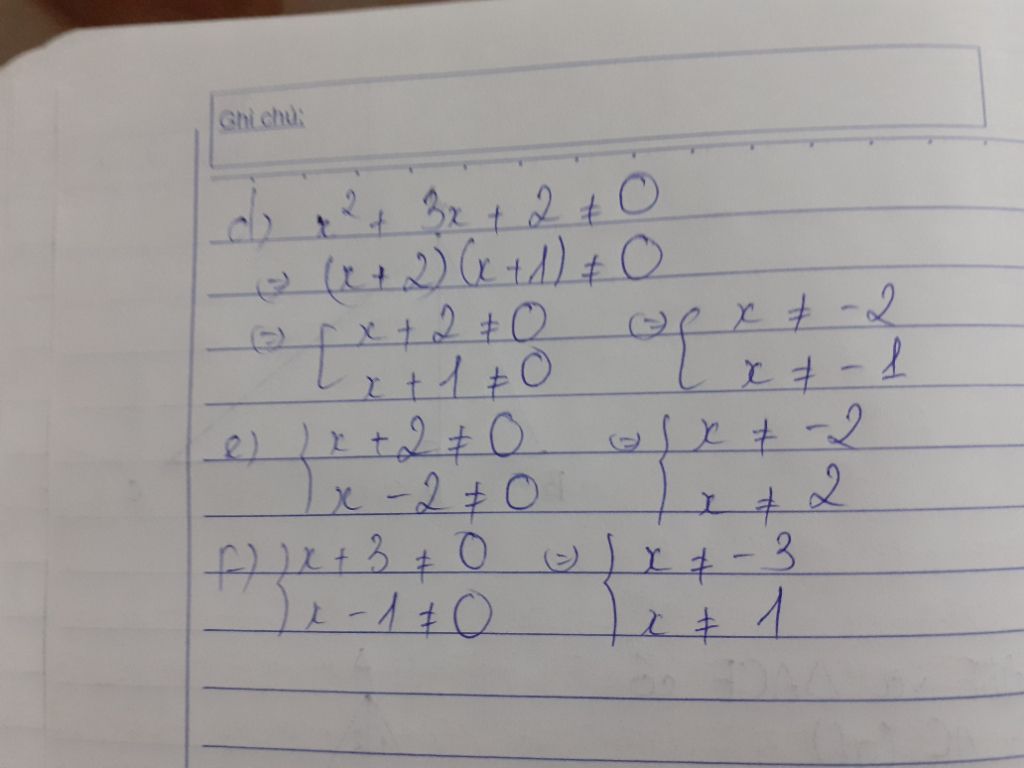 Ghi chú:
d) x² + 3x + 2 ≠ 0
⇔ (x + 2)(x + 1) ≠ 0
⇔ [ x + 2 ≠ 0 ⇔ { x ≠ -2
x + 1 ≠ 0 x ≠ -1
e) { x + 2 ≠ 0 ⇔ { x ≠ -2
x - 2 ≠ 0 x ≠ 2
f) { x + 3 ≠ 0 ⇔ { x ≠ -3
x - 1 ≠ 0 x ≠ 1